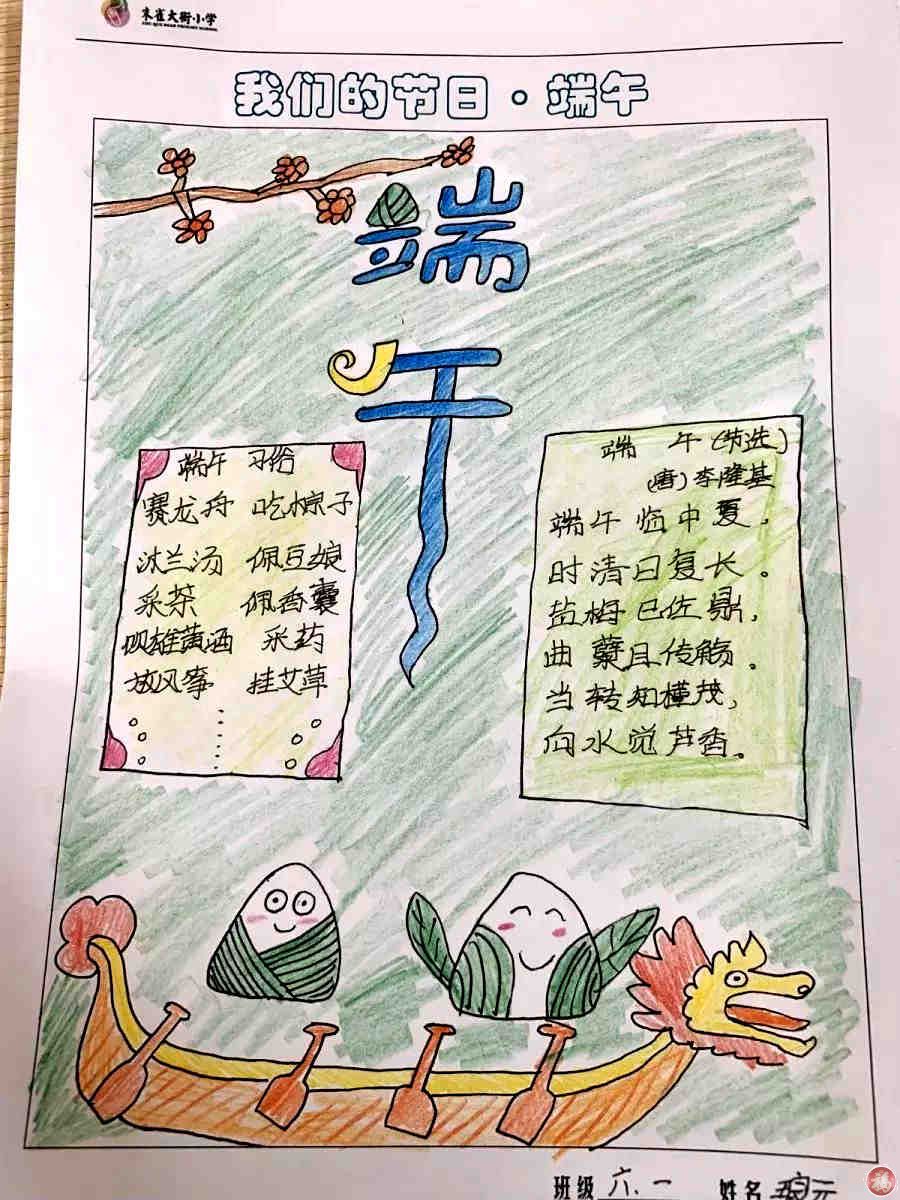 朱雀大街小学
我们的节日·端午
端午
端午 习俗
赛龙舟 吃粽子
沐兰汤 佩豆娘
采茶 佩香囊
喝雄黄酒 采药
放风筝 挂艾草
端 午(节选)
(唐)李隆基
端午临中夏,
时清日复长。
盐梅已佐鼎,
曲糵且传觞。
当转知槿茂,
向水觉芦香。
班级 六.一 姓名
福